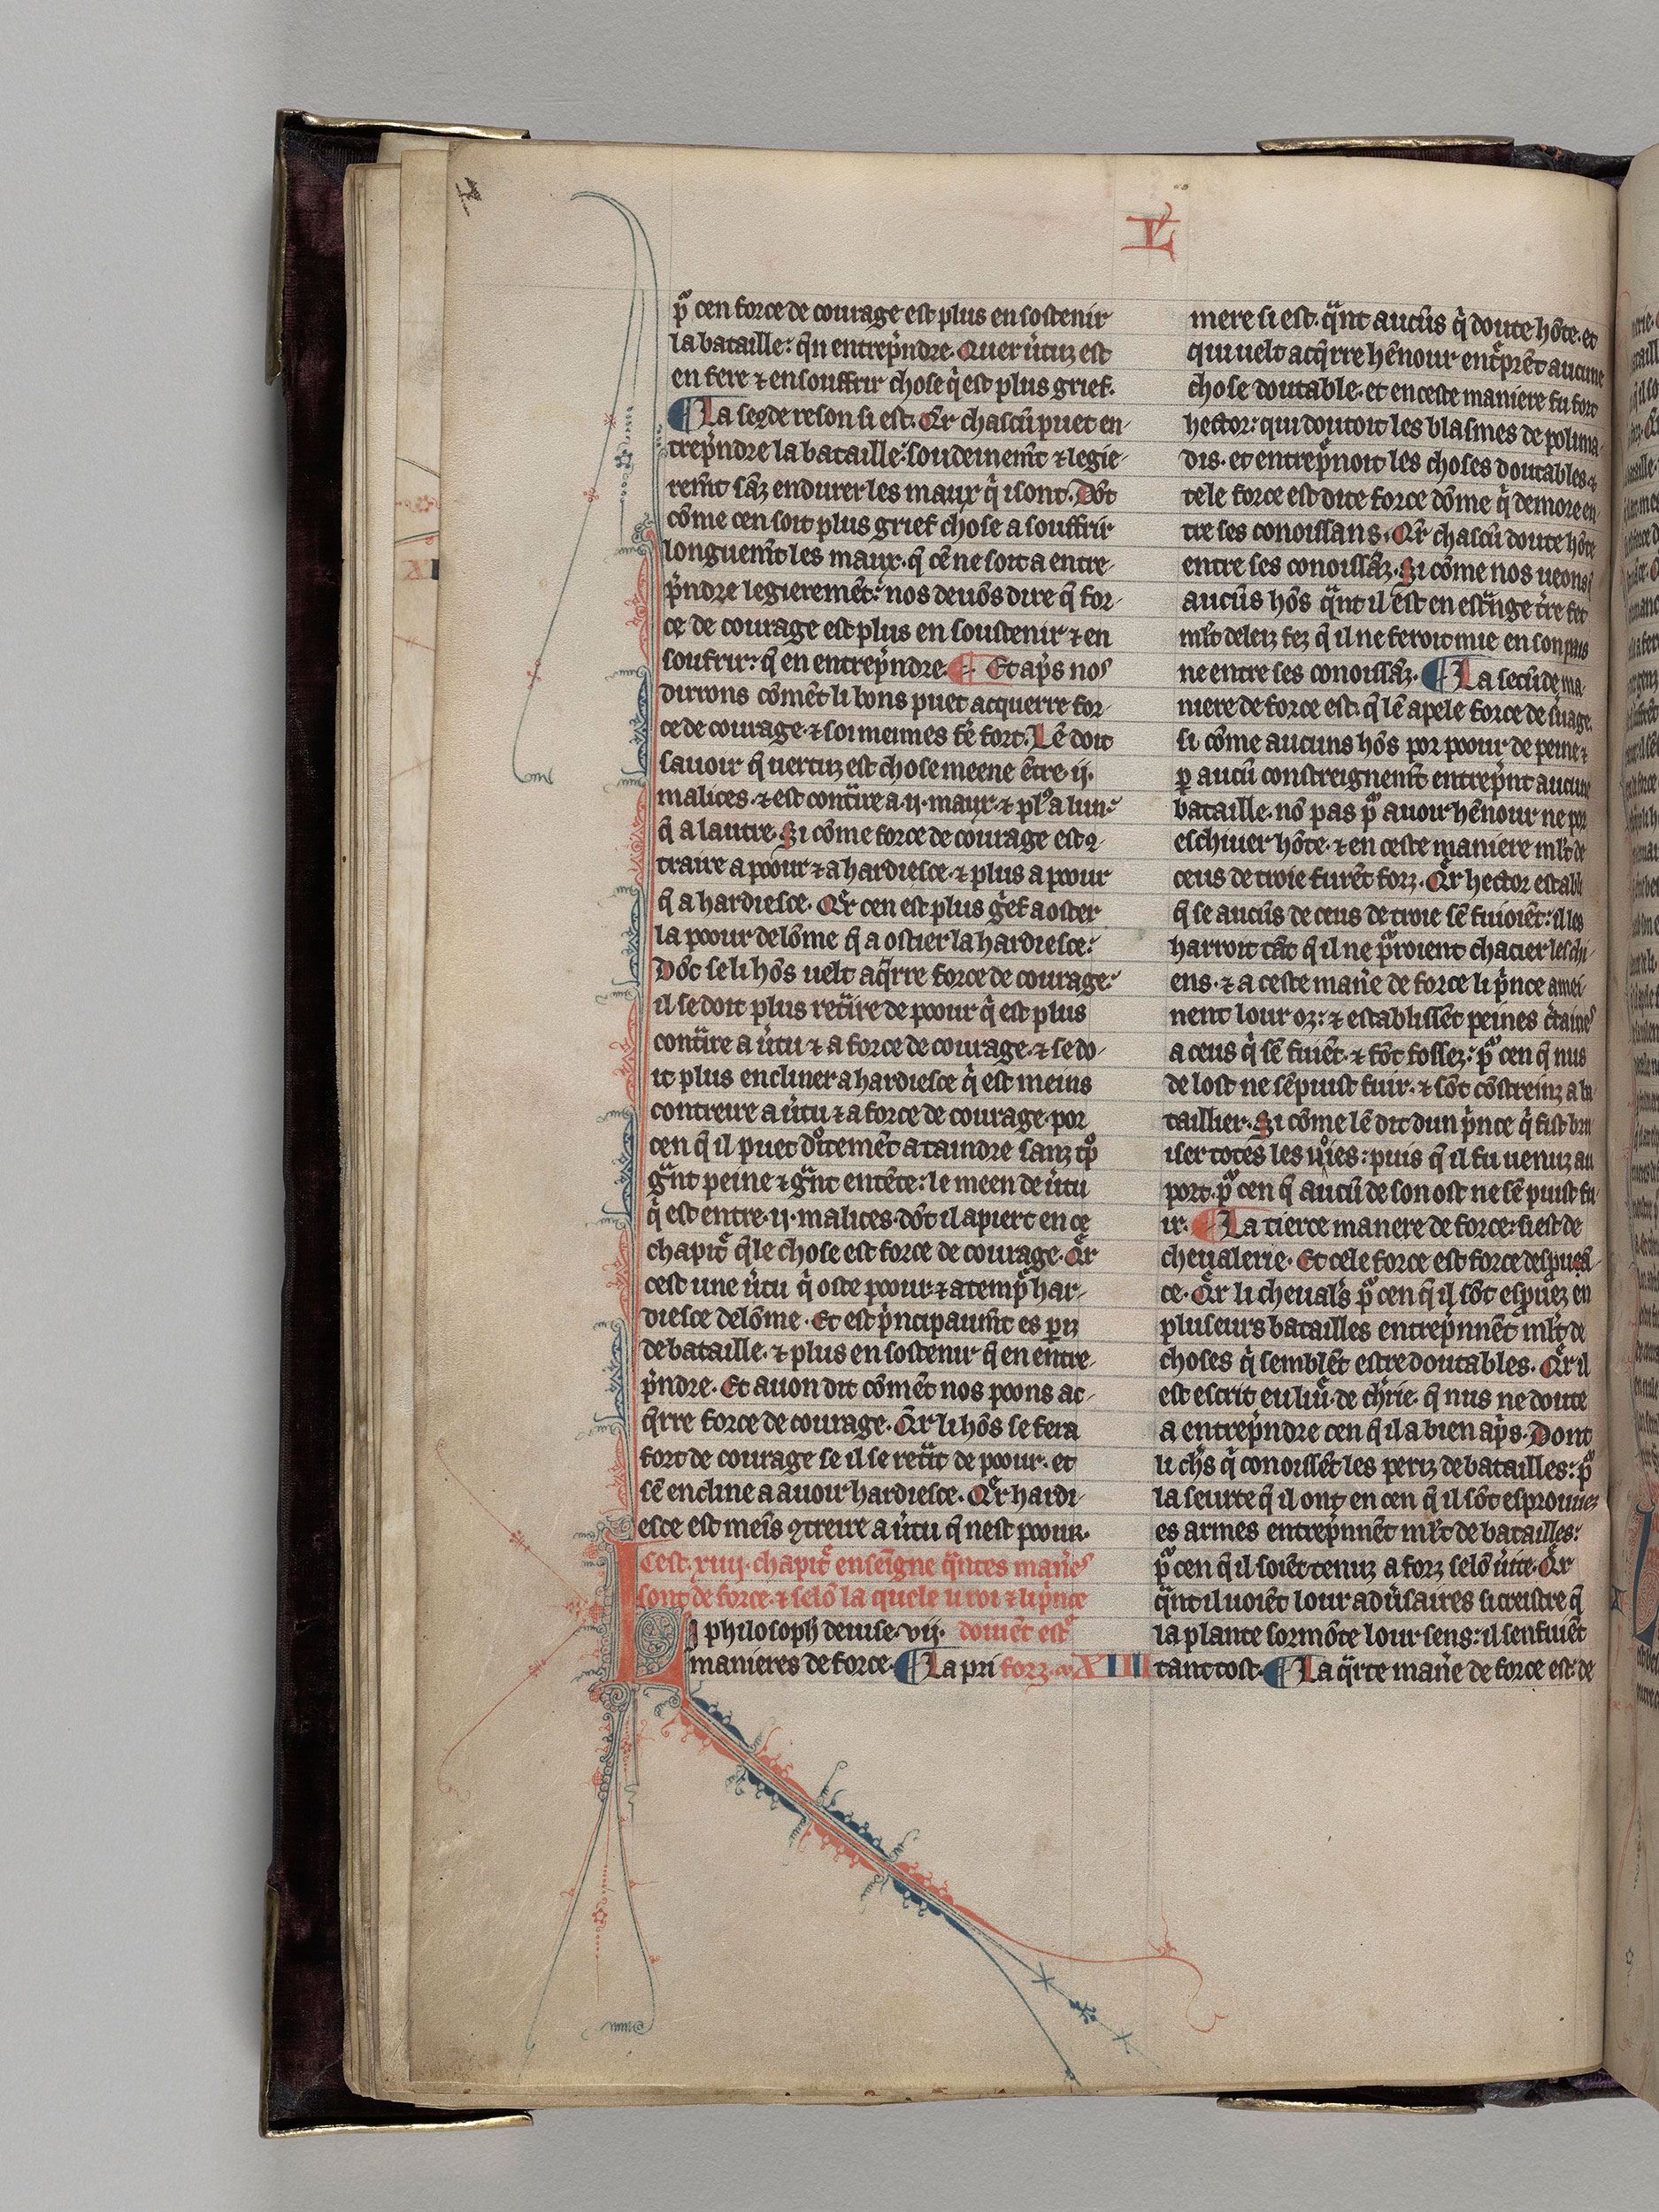 L
pͦ cen force de courage est plus en sostenir
la bataille: q̄n entrep̄ndre. Quer ůtuz est
en fere ⁊ en souffrir chose q̇ est plus grief.
¶ La segde reson si est. Qr chascū puet en-
trep̄ndre la bataille: soudeinem̄t ⁊ legie-
rem̄t sāz endurer les maux q̇ i sont. Dōt
cōme cen soit plus grief chose a souffrir
longuem̄t les maux. q̄ cē ne soit a entre-
p̄ndre legieremēt: nos deuōs dire q̄ for-
ce de courage est plus en soustenir ⁊ en
soufrir: q̄ en entrep̄ndre. ¶ Et ap̄s nos
dirrons cōmēt li hons puet acquerre for-
ce de courage. ⁊ soi meimes fē fort. Lē doit
sauoir q̄ uertuz est chose meene ētre .ij.
malices. ⁊ est contᷓire a .ij. maux. ⁊ plꝰ a lun:
q̄ a lautre. Si cōme force de courage est ꝯ-
traire a poour ⁊ a hardiesce. ⁊ plus a poour
q̄ a hardiesce. Qr cen est plus gⁱef a oster
la poour de lōme q̄ a ostier la hardiesce:
Dōt se li hōs uelt aq̄rre force de courage:
il se doit plus retᷓire de poour q̇ est plus
contᷓire a ůtu ⁊ a force de courage. ⁊ se do-
it plus encliner a hardiesce q̇ est meins
contreire a ůtu ⁊ a force de courage. por
cen q̄ il puet dͦitemēt ataindre sanz tͦp
gᷓnt peine ⁊ gᷓnt entēte: le meen de ůtu
q̇ est entre .ij. malices. dōt il apiert en ce
chapitͤ q̄le chose est force de courage. Qr
cest une ůtu q̇ oste poour ⁊ atempͤ har-
diesce de lōme. Et est p̄ncipaum̄t es ꝑiz
de bataille. ⁊ plus en sostenir q̄ en entre-
p̄ndre. Et auon dit cōmēt nos poons ac-
q̄rre force de courage. Qr li hōs se fera
fort de courage se il se retᷓit de poour. et
sē encline a auoir hardiesce. Qr hardi-
esce est meīs ꝯtreire a ůtu q̄ nest poour.
Cest .xiiij. chapitͤ enseigne qᷓntes man̄es
sont de force. ⁊ selō la quele li roi ⁊ li p̄nce
doiuēt estͤ
forz. XIIII
Li philosoph̄ deuise .vij.
manieres de force. ¶ La pri
mere si est. qᷓnt aucūs q̇ doute hōte. et
qui uelt acq̄rre hēnour entͤprēt aucune
chose doutable. et en ceste maniere fu fort
hector: qui doutoit les blasmes de polima-
dis. et entrep̄noit les choses doutables. ⁊
tele force est dite force dōme q̇ demore en-
tre ses conoissans. Qr chascū doute hōte
entre ses conoissāz. Si cōme nos ueons
aucūs hōs qᷓnt il est en estᷓnge t̄re fet
ml̄t de leiz fez q̄ il ne feroit mie en son pais
ne entre ses conoissāz. ¶ La secūde ma-
niere de force est. q̄ lē apele force de suage.
si cōme aucuns hōs por poour de peine ⁊
ꝑ aucū constreignem̄t entrep̄nt aucune
bataille. nō pas pͦ auoir hēnour ne por
eschiuer hōte. ⁊ en ceste maniere ml̄t de
ceus de troie furēt forz. Qr hector establi
q̄ se aucūs de ceus de troie sē fuioiēt: il les
harroit tāt q̄ il ne pͦroient chacier les chi-
ens. ⁊ a ceste man̄e de force li p̄nce amei-
nent lour oz: ⁊ establissēt peines c̄taines
a ceus q̇ sē fuiēt. ⁊ fōt fossez: pͦ cen q̄ nus
de lost ne sē puist fuir. ⁊ sōt cōstreinz a ba-
taillier. Si cōme lē dit dun p̄nce q̇ fist bru-
iser totes les uͦies: puis q̄ il fu uenuz au
port. pͦ cen q̄ aucū de son ost ne sē puist fu-
ir. ¶ La tierce manere de force: si est de
cheualerie. Et cele force est force despuēs-
ce. Qr li cheual̄s pͦ cen q̄ il sōt esꝓuez en
pluseurs batailles entrep̄nnēt ml̄t de
choses q̇ semblēt estre doutables. Qr il
est escrit eu liuͤ. de ch̄rie. q̄ nus ne doute
a entrep̄ndre cen q̄ il a bien ap̄s. Dont
li ch̄s q̇ conoissēt les periz de batailles: pͦ
la seurte q̄ il ont en cen q̄ il sōt esprouuez
es armes entrep̄nnēt ml̄t de batailles:
pͦ cen q̄ il soiēt tenuz a forz selō ůite. Qr
qᷓnt il uoiēt lour adůsaires si creistre q̄
la plante sormōte lour sens: il senfuiēt
tantost. ¶ La qᷓrte man̄e de force est: de